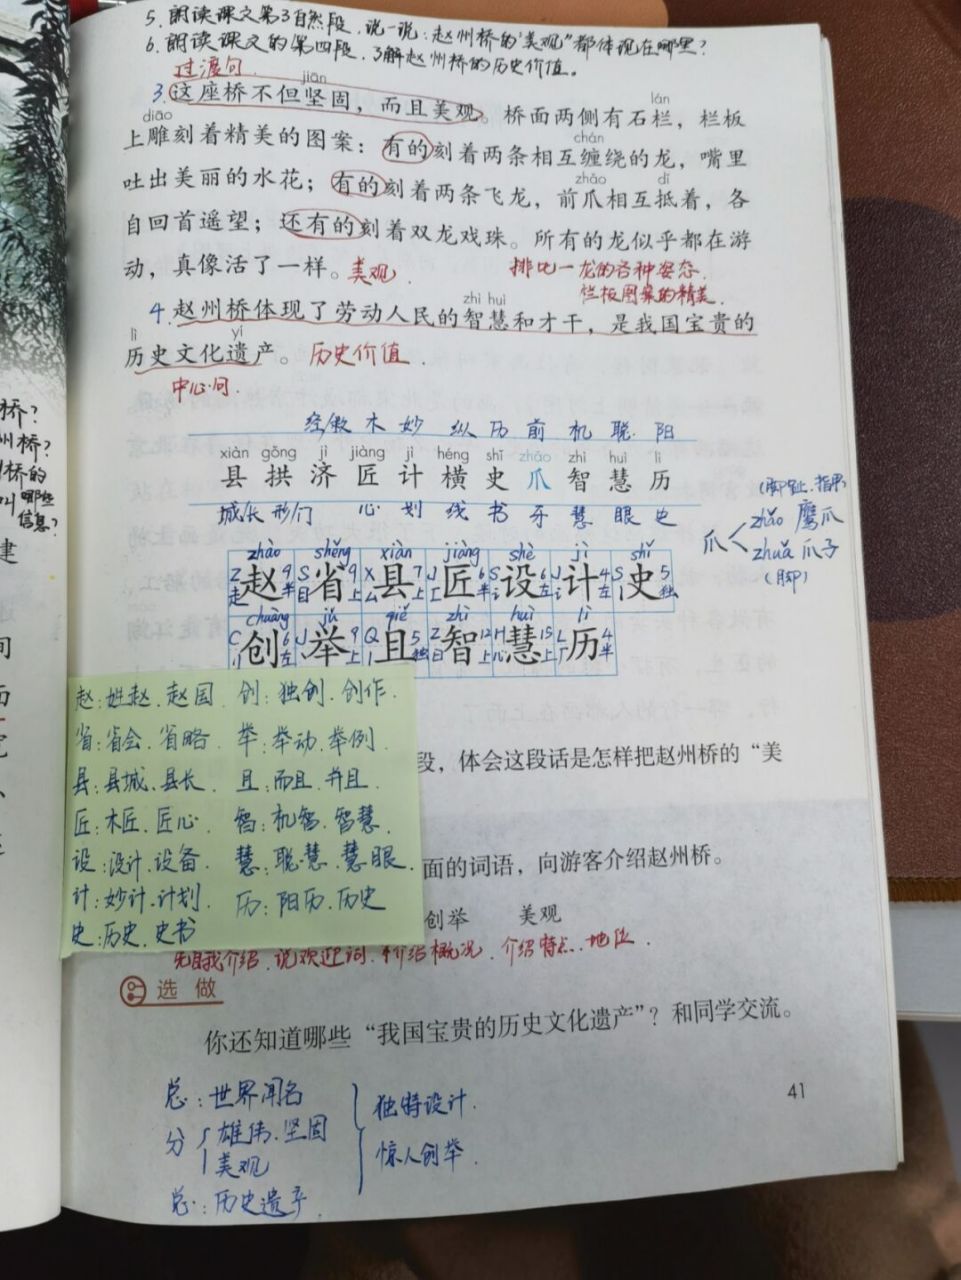 5. 朗读课文第3自然段,说一说:赵州桥的"美观"都体现在哪里?
6. 朗读课文的第四段,了解赵州桥的历史价值。
过渡句
jiān
3.这座桥不但坚固,而且美观。桥面两侧有石栏,栏板
lán
diāo
上雕刻着精美的图案:有的刻着两条相互缠绕的龙,嘴里
chán
吐出美丽的水花;有的刻着两条飞龙,前爪相互抵着,各
zhǎo dǐ
自回首遥望;还有的刻着双龙戏珠。所有的龙似乎都在游
动,真像活了一样。美观
排比—龙的各种姿态.
栏板图案的精美.
zhì huì
4.赵州桥体现了劳动人民的智慧和才干,是我国宝贵的
lì yí
历史文化遗产。历史价值
中心句.
桥?
州桥?
桥的
叫哪些
信息?
建
间
面
木 妙 纵 历 前 机 聪 阳
xiàn gǒng jì jiàng jì héng shǐ zhǎo zhì huì lì
县 拱 济 匠 计 横 史 爪 智 慧 历
城/长 形/门 心 划 线 书 牙 慧 眼 史
(脚趾.指甲)
爪 zhǎo 鹰爪
zhuǎ 爪子
(脚)
zhào shěng xiàn jiàng shè jì shǐ
赵 省 县 匠 设 计 史
chuàng jǔ qiě zhì huì lì
创 举 且 智 慧 历
赵:姓赵.赵国 创:独创.创作.
省:省会.省略. 举:举动.举例.
县:县城.县长 且:而且.并且.
匠:木匠.匠心. 智:机智.智慧.
设:设计.设备. 慧:聪慧.慧眼.
计:妙计.计划 历:阳历.历史
史:历史.史书
段,体会这段话是怎样把赵州桥的“美
面的词语,向游客介绍赵州桥。
创举 美观
先自我介绍.说欢迎词.介绍概况.介绍特点.地位.
选做
你还知道哪些“我国宝贵的历史文化遗产”?和同学交流。
41
总:世界闻名
分 雄伟.坚固
美观
总:历史遗产.
独特设计.
惊人创举.